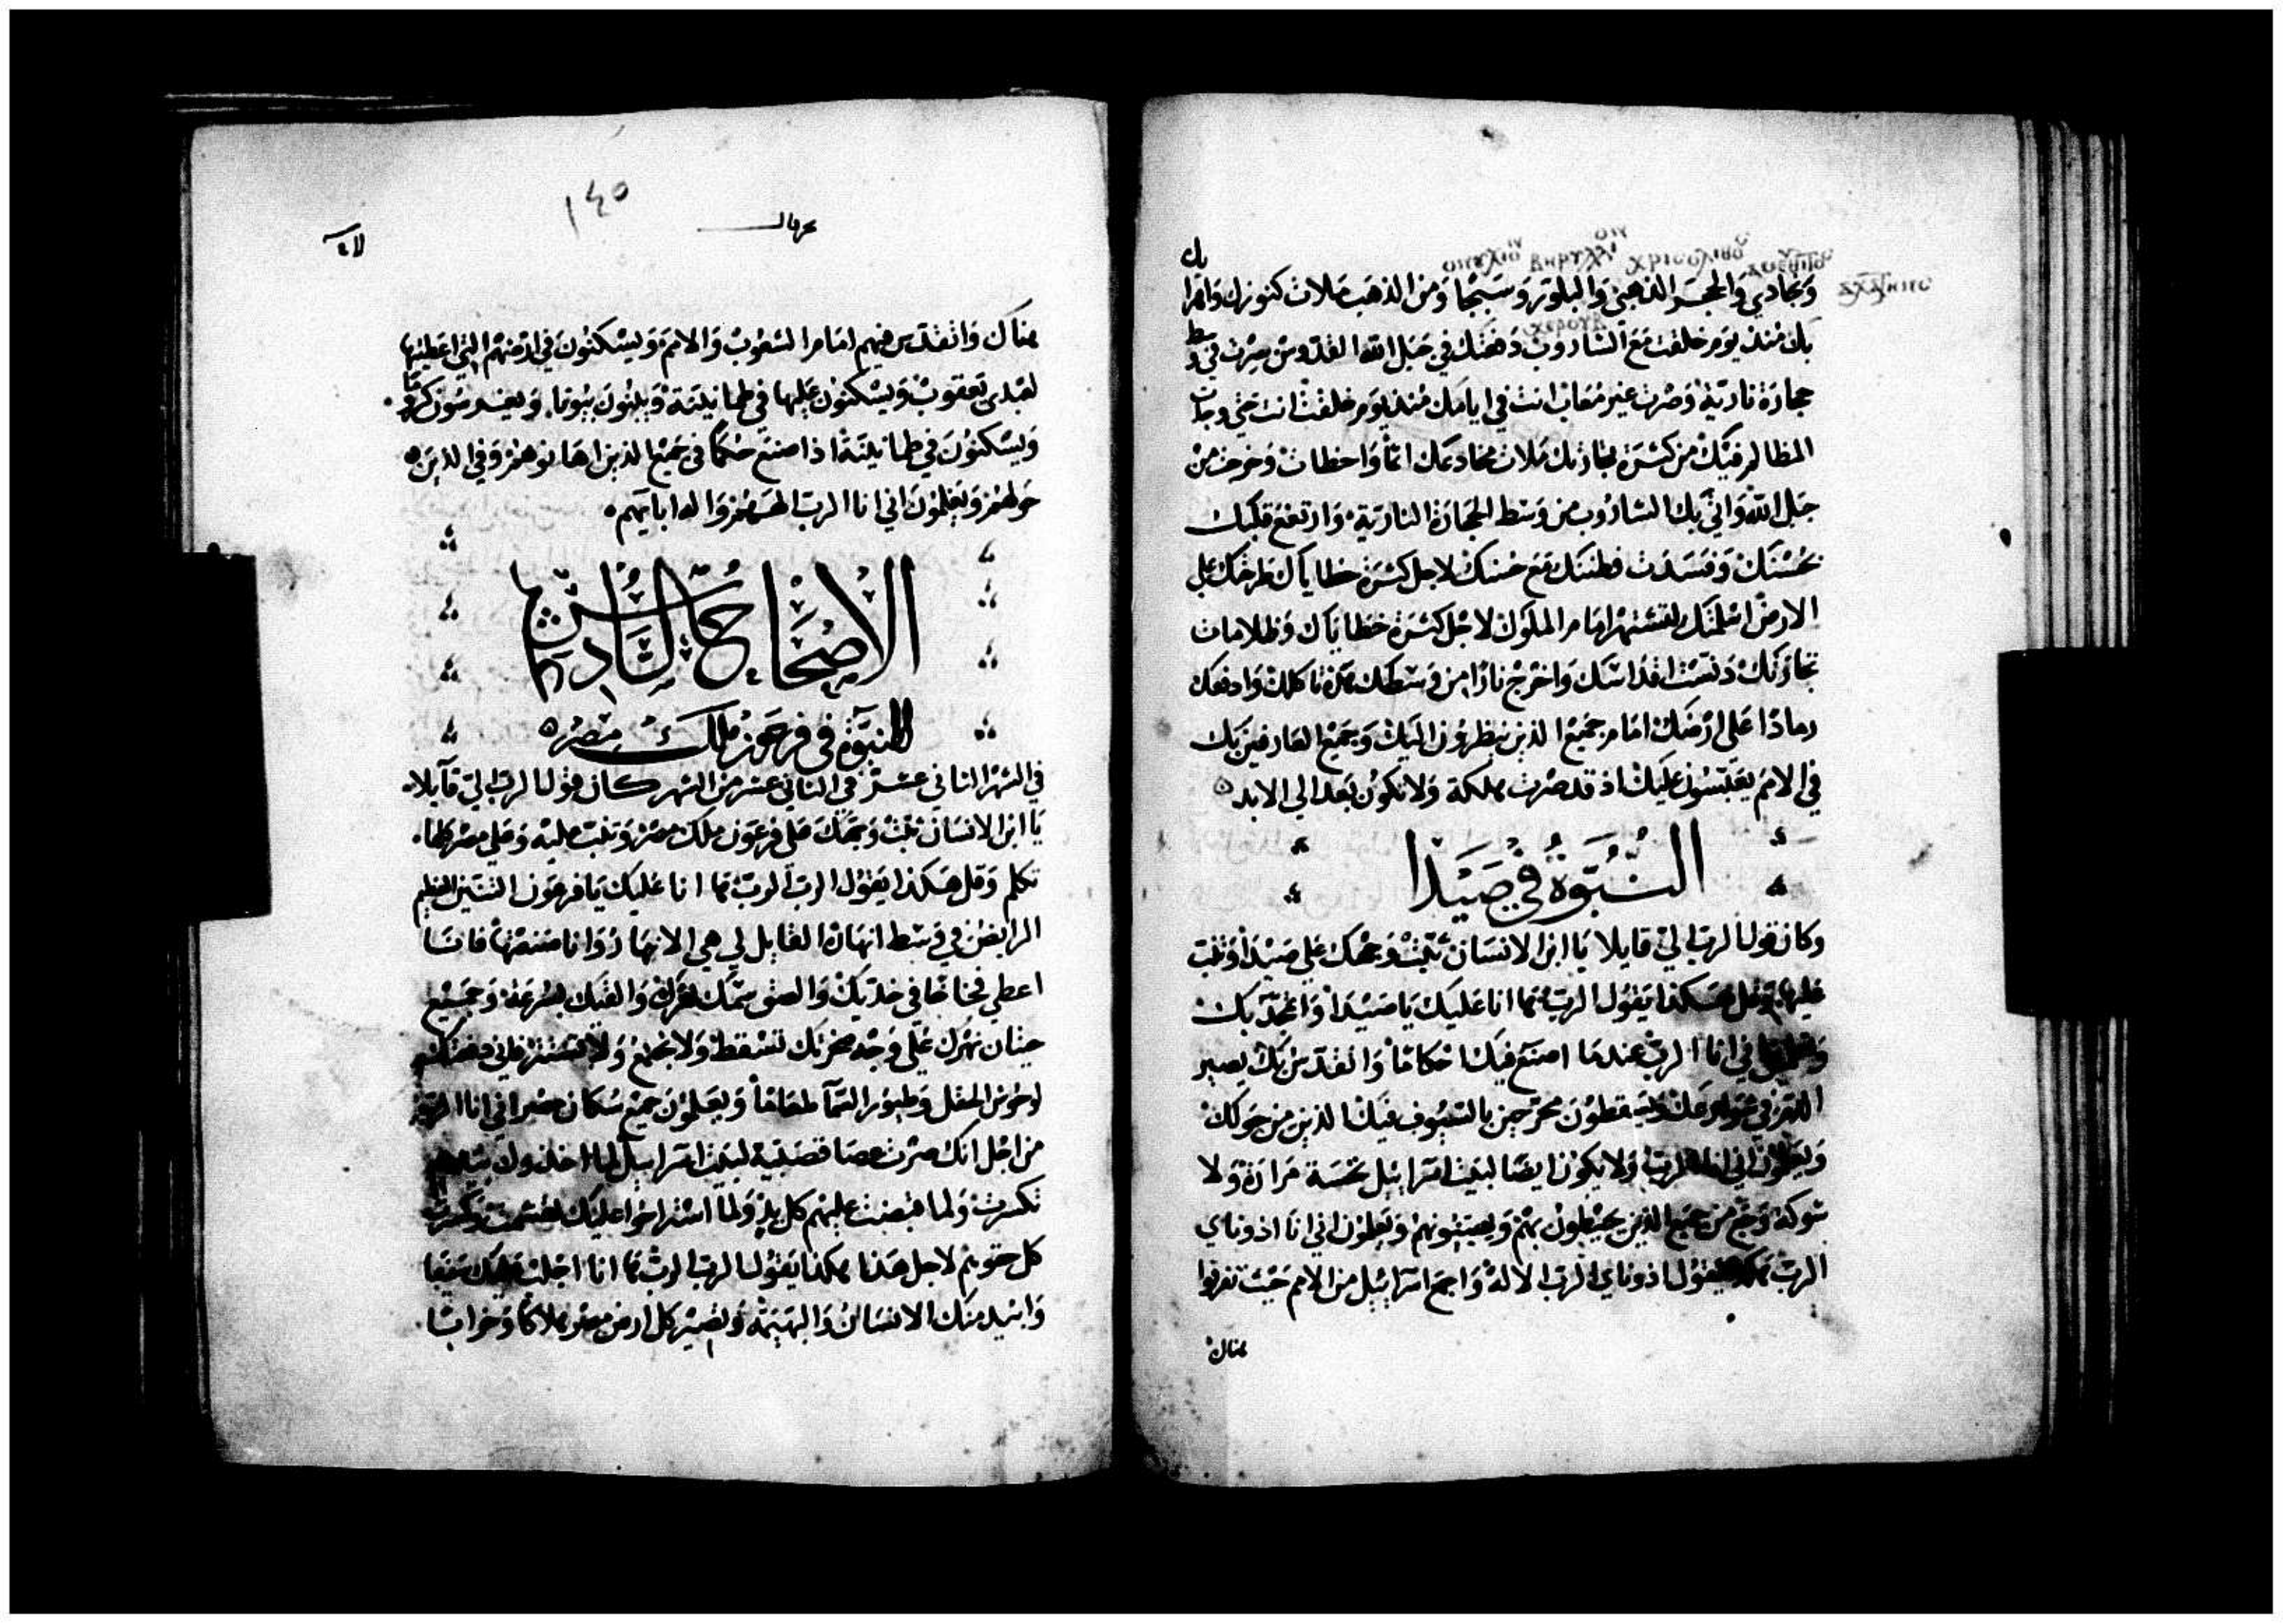 وبجادي والحجر الذهبي والبلور وسبجا ومن الذهب ملات كنوزك واهرا
بك منذ يوم خلقت مع الشاروب دفعتك في جبل الله القدوس صرت في وسط
حجارة نارية وصرت غير معاب انت في ايامك منذ يوم خلقت انت حتي وجدت
المظالم فيك من كثرة تجارتك ملات مخادعك اثما واخطات وخرجت من
جبل الله واتي بك الشاروب من وسط الحجارة النارية وارتفع قلبك
بحسنك وفسدت فطنتك مع حسنك لاجل كثرة خطاياك طرحتك علي
الارض اسلمتك لفتنهم امام الملوك لاجل كثرة خطاياك وظلامات
تجارتك دنست اقداسك واخرج نارا من وسطك هذه تاكلك وادفعك
رمادا علي ارضك امام جميع الذين ينظرون اليك وجميع العارفين بك
في الامم يعبسون عليك اذ قد صرت مهلكة ولا تكون بعد الي الابد
النبوة في صيدا
وكان قول الرب الي قايلا يا ابن الانسان ثبت وجهك علي صيدا وتنب
عليها وقل هكذا يقول الرب انا عليك يا صيدا واتمجد بك
اني انا الرب عندما اصنع فيك احكاما واتقدس بك يصير
الدم في ويسقطون مجرحين بالسيوف فيك الذين من حولك
ويعلمون اني انا الرب ولا يكون ايضا لبيت اسراييل نخسة مرارة ولا
شوكة وجع من جميع الذين يحيطون بهم ويعلمون اني انا ادوناي
الرب يقول ادوناي الرب الاله واجمع اسراييل من الامم حيث تفرقوا
هناك
١٤٥
هناك واتقدس فيهم امام الشعوب والامم ويسكنون في ارضهم التي اعطيتها
لعبدي يعقوب ويسكنون عليها في طمانينة ويبنون بيوتا ويغرسون كروما
ويسكنون في طمانينة اذا صنع حكما في جميع الذين اهانوهم وفي الذين
حولهم ويعلمون اني انا الرب الههم واله ابايهم
الاصحاح السادس
النبوة في فرعون ملك مصر
في الشهر الثاني عشر في الثاني عشر من الشهر كان قول الرب الي قايلا
يا ابن الانسان ثبت وجهك علي فرعون ملك مصر وتنب عليه وعلي مصر كلها
تكلم وقل هكذا يقول الرب الرب انا عليك يا فرعون التنين العظيم
الرابض في وسط انهاره القايل لي هي الانهار وانا صنعتها فانا
اعطي فخاخا في خديك والصق سمك نهرك والقيك بسرعة وجميع
حيتان نهرك علي وجه صحرتك تسقط ولا تجمع ولا تستتر فاني دفعتك
لوحوش الحقل وطيور السما طعاما ويعلمون جميع سكان مصر اني انا الرب
من اجل انك صرت عصا قصبية لبيت اسراييل لما اخذوك بيدهم
تكسرت ولما قبضت عليهم كل يد ولما استراحوا عليك وكسرت
كل حقويهم لاجل هذا هكذا يقول الرب الرب انا اجلب عليك سيفا
وابيد منك الانسان والبهيمة وتصير كل ارض مصر هلاكا وخرابا